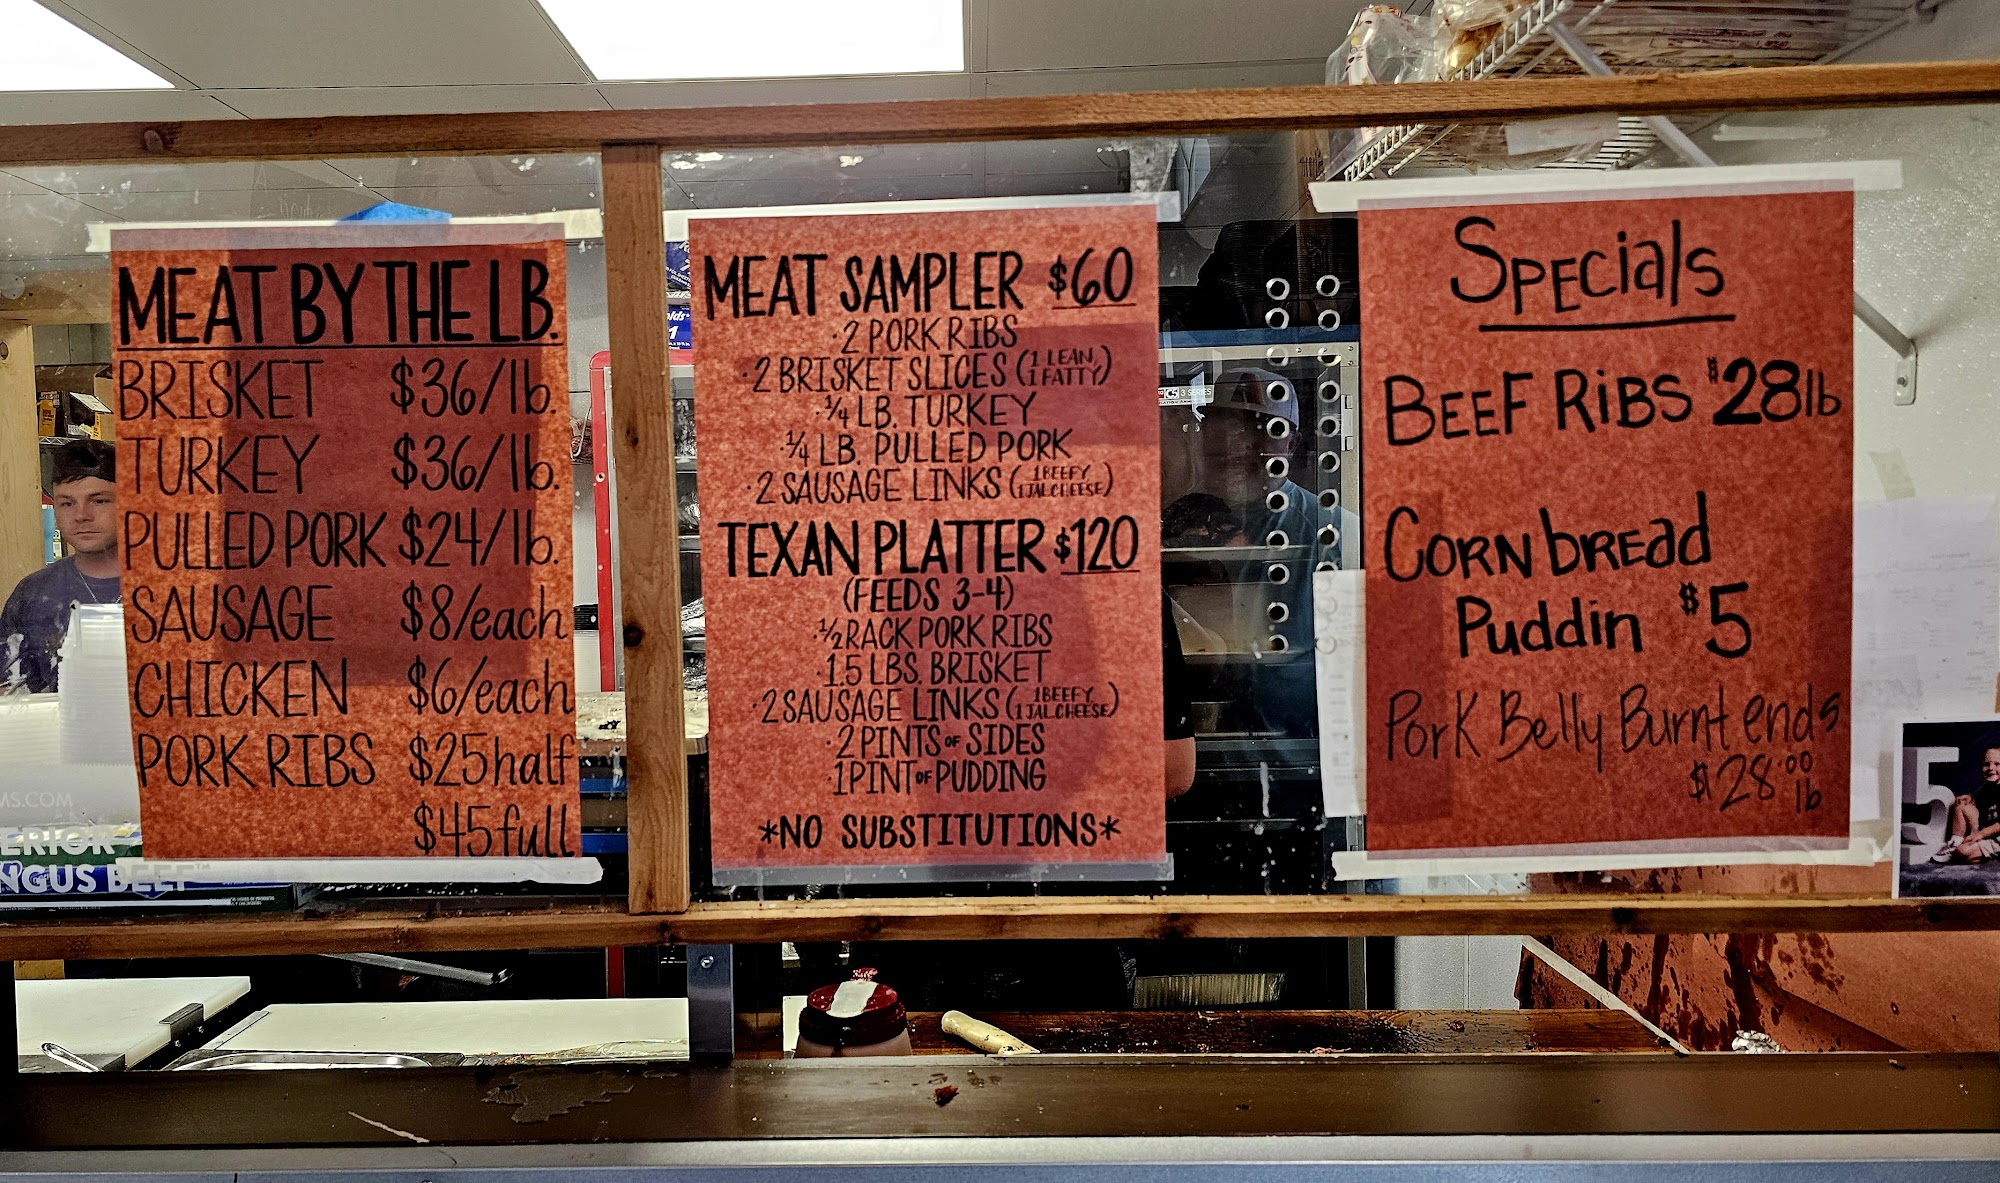 MEAT BY THE LB.
BRISKET $36/lb.
TURKEY $36/lb.
PULLED PORK $24/lb.
SAUSAGE $8/each
CHICKEN $6/each
PORK RIBS $25 half
$45 full
MEAT SAMPLER $60
·2 PORK RIBS
·2 BRISKET SLICES (1 LEAN, 1 FATTY)
·1/4 LB. TURKEY
·1/4 LB. PULLED PORK
·2 SAUSAGE LINKS (1 BEEFY 1 JALCHEESE)
TEXAN PLATTER $120
(FEEDS 3-4)
·1/2 RACK PORK RIBS
·1.5 LBS. BRISKET
·2 SAUSAGE LINKS (1 BEEFY 1 JALCHEESE)
·2 PINTS OF SIDES
·1 PINT OF PUDDING
*NO SUBSTITUTIONS*
Specials
BEEF RiBS $28 lb
CORN bREad
Puddin $5
Pork Belly Burnt ends
$28.00 lb
MS.COM
ERIOR
NGUS BEEF™
3 SERIES
5